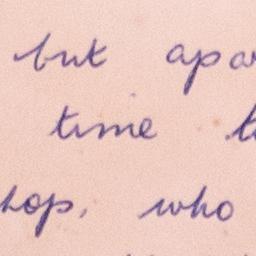 but apar
time
hop, who